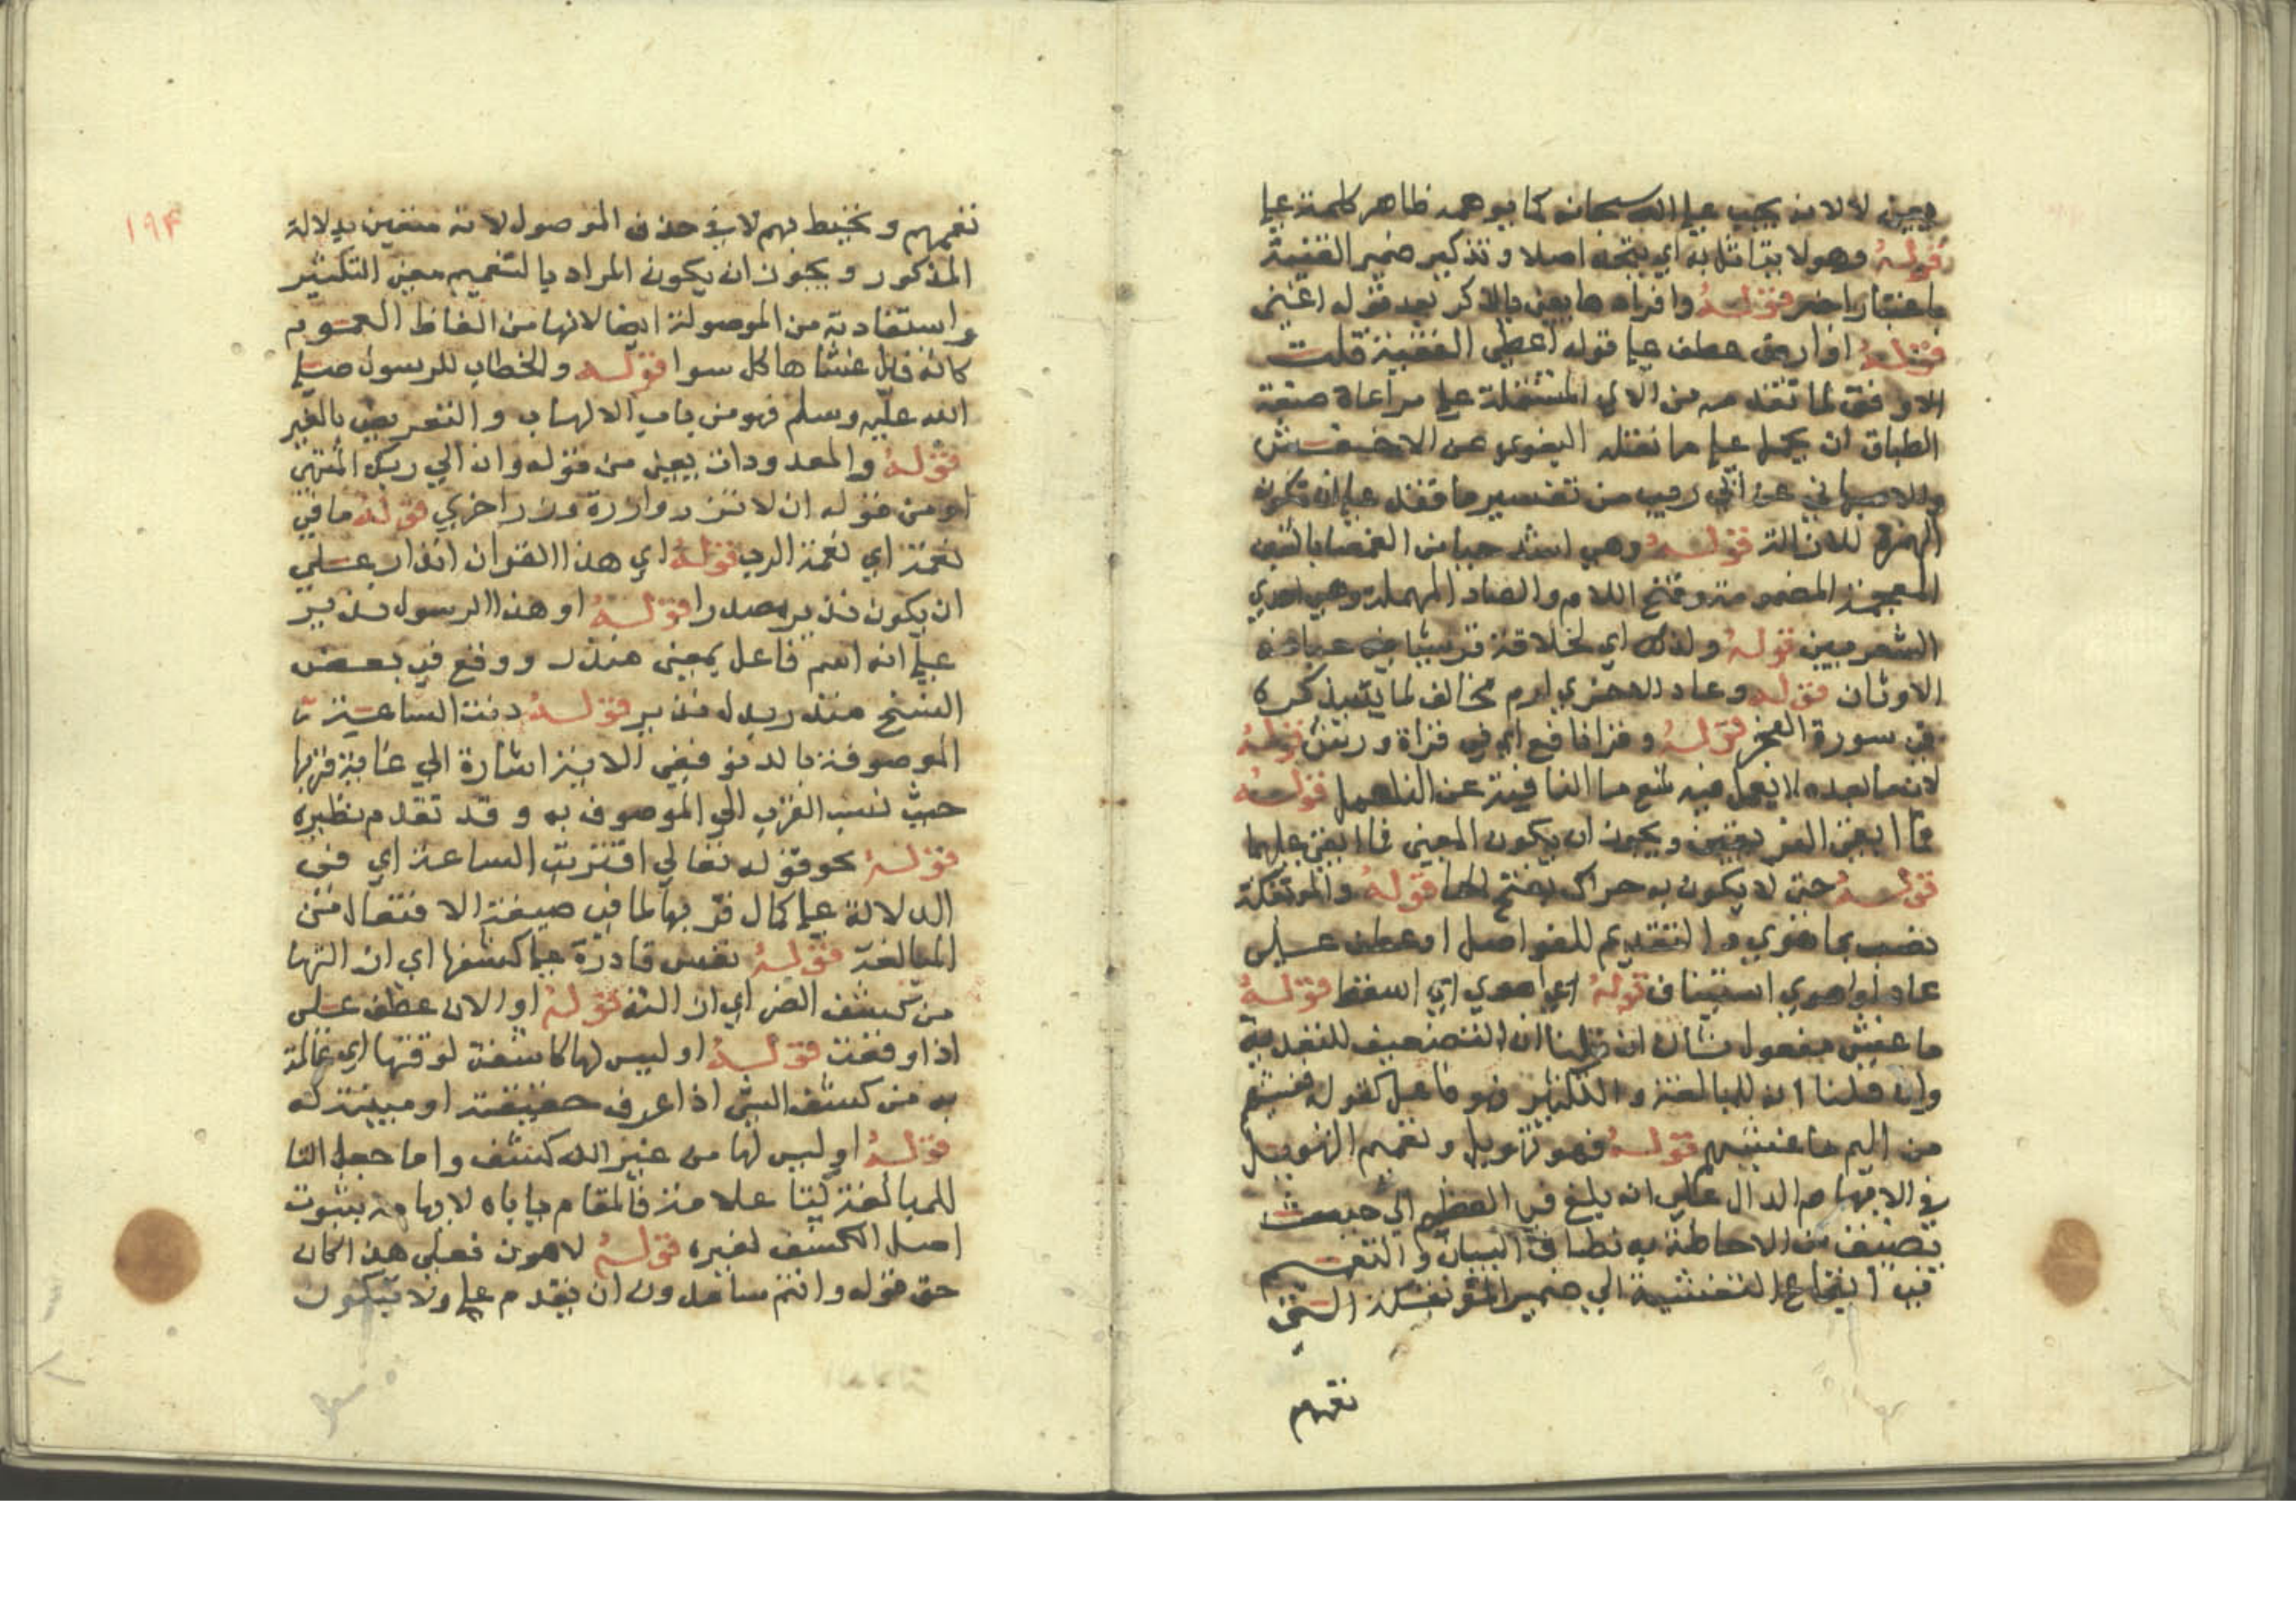 يعني لا لانه يجب على الله سبحانه كما يوهمه ظاهر كلمة على
قوله وهو لا يتماثل به اي يتجه اصلا وتذكير ضمير الغنيمة
باعتبار اخر قوله وافرادها يعني بالذكر بعد قوله اغنى
قوله او ارضى عطف على قوله اعطى القنية قلت
الاوفق لما تقدمه من الاي المشتملة على مراعاة صنعة
الطباق ان يحمل على ما نقله البغوي عن الاخفش
والاصبهاني عن ابي زيد من تفسير ما فقد على ان تكون
الهمزة للازالة قوله وهي اشد حبا من الغمصا بالغين
المعجمة المضمومة وفتح اللام والصاد المهملة وهي احدى
الشعريين قوله ولذلك اي لخلافة قريشا في عبادة
الاوثان قوله وعاد الاخرى ارم مخالف لما يذكره
في سورة الفجر قوله وقرا نافع اي في قراة ورتش قوله
لان ما بعده لا يعمل فيه لمنع ما النافية عن العمل قوله
فما ابقى الفريقين ويجوز ان يكون المعنى فما ابقى عليهما
قوله حتى لا يكون به حراك بفتح الحا قوله والموتفكة
نصب بما هوى والتقديم للفواصل او عطف على
عاد او اهوى استيناف قوله اي اهوى اي اسقط قوله
ما غشى مفعول ثان ان قلنا ان التضعيف للتعدية
وان قلنا انه للمبالغة والتكثير فهو فاعل كقوله فغشيهم
من اليم ما غشيهم قوله فهو تهويل وتعميم التهويل
في الابهام الدال على انه بلغ في العظم الى حيث
تضيق من الاحاطة به نطاق البيان والتعميم
في ايقاع التغشية الى ضمير الموتفكة التي
تعمهم
١٩٤
تعمهم وتحيط بهم لا في حذف الموصول لانه متعين بدلالة
المذكور ويجوز ان يكون المراد بالتعميم معنى التكثير
واستفادته من الموصولة ايضا لانها من الفاظ العموم
كانه قال غشاها كل سوا قوله والخطاب للرسول صلى
الله عليه وسلم فهو من باب الالهاب والتعريض بالغير
قوله والمعدودات يعني من قوله وان الى ربك المنتهى
او من قوله ان لا تزر وازرة وزر اخرى قوله ما في
نعمة اي نعمة الرب قوله اي هذا القران انذار على
ان يكون نذير مصدرا قوله او هذا الرسول نذير
على انه اسم فاعل بمعنى منذر ووقع في بعض
النسخ منذر بدل نذير قوله دنت الساعة
الموصوفة بالدنو ففي الاية اشارة الى غاية قربها
حيث نسب القرب الى الموصوف به وقد تقدم نظيره
قوله نحو قوله تعالى اقتربت الساعة اي في
الدلالة على كمال قربها لما في صيغة الافتعال من
المبالغة قوله نفس قادرة على كشفها اي ازالتها
من كشف الضر اي ازاله قوله او الان عطف على
اذا وقعت قوله او ليس لها كاشفة لوقتها اي عالمة
به من كشف الشي اذا عرف حقيقته او مبينة له
قوله او ليس لها من غير الله كشف واما جعل التا
للمبالغة كتا علامة فالمقام ياباه لايهامه بثبوت
اصل الكشف لغيره قوله لاهون فعلى هذا كان
حق قوله وانتم سامدون ان يقدم على ولا تبكون